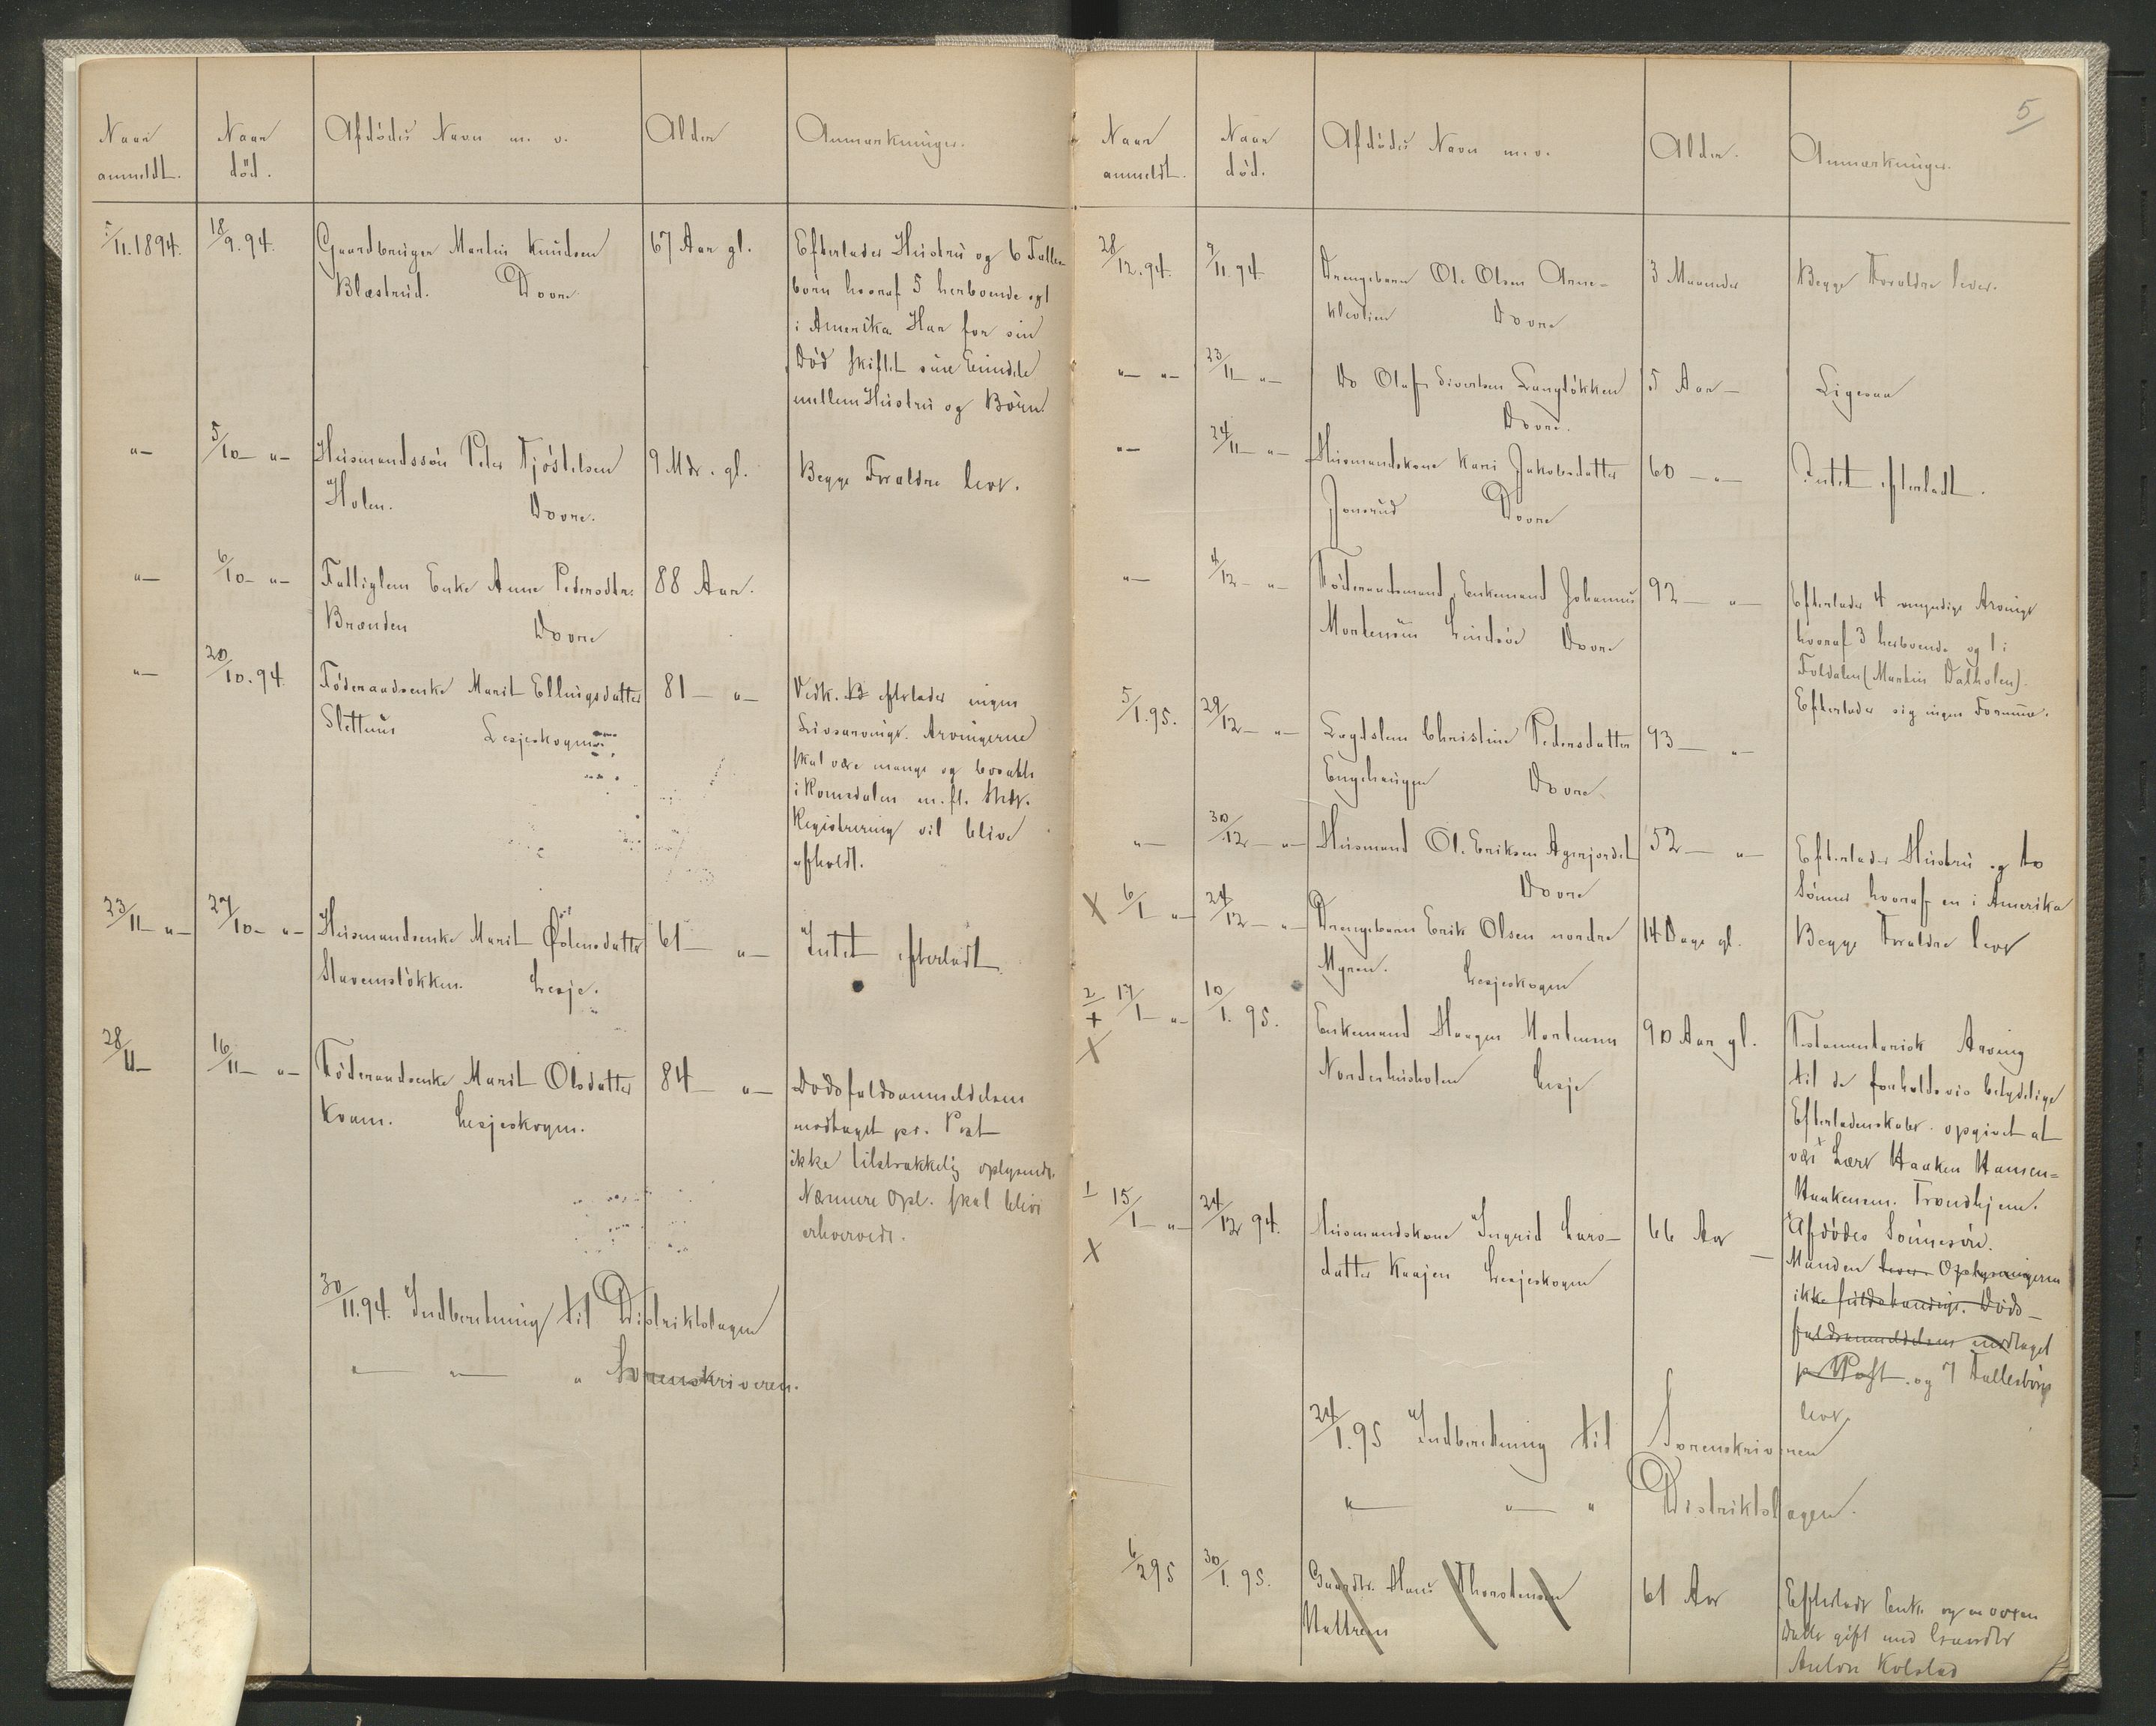 Naar anmeldt. Naar död. Afdødes Navn m. v. Alder Anmærkninger.
5/11.1894. 18/9.94. Gaardbruger Martin Knudsen 67 Aar gl. Efterlader Hustru og 6 Fælles-
Blæstrud. Dovre børn hvoraf 5 herboende og 1
i Amerika. Har før sin
Død skiftet sine Eiendele
mellem Hustru og Børn.
"— 5/10— "— Husmandssøn Peder Tjöstelsen 9 Mdr. gl. Begge Forældre lever.
Holen. Dovre.
"— 6/10— "— Fattiglem Enke Anne Pedersdtr. 88 Aar.
Brænden Dovre
"— 20/10.94. Föderaadsenke Marit Ellingsdatter 81— "— Vedk. efterlader ingen
Slettum Lesjeskogen Livsarvinge. Arvingerne
skal være mange og bosatte
i Romsdalen m. fl. Stdr.
Registrering vil blive
afholdt.
23/11— "— 27/10— "— Husmandsenke Marit Östensdatter 61— "— Intet efterladt
Stavemslökken. Lesje.
28/11— 16/11— "— Föderaadsenke Marit Olsdatter 84— "— Dödsfaldsanmeldelsen
Kvam. Lesjeskogen. modtaget pr. Post
ikke tilstrækkelig oplysende.
Nærmere Opl. skal blive
erhvervede.
30/11.94. Indberetning til Distriktslægen
"— "— " Sorenskriveren.
5
Naar anmeldt. Naar död. Afdødes Navn m. v. Alder. Anmærkninger.
28/12.94. 9/11.94. Drengebarn Ole Olsen Arne- 3 Maaneder Begge Forældre lever.
klevlien Dovre
"— "— 23/11— "— Do Olaf Sivertsen Langlökken 5 Aar— Ligesaa
Dovre.
"— 24/11— "— Husmandskone Kari Jakobsdatter 60—"— Intet efterladt.
Jonsrud Dovre
"— 4/12— "— Föderaadsmand, Enkemand Johannes 92— "— Efterlader 4 myndige Arvinge
Mortensen Lindsöe Dovre hvoraf 3 herboende og 1 i
Foldalen (Martin Dalholen).
Efterlader sig ingen Formue.
5/1.95. 29/12— "— Lægdslem Christine Pedersdatter 93— "—
Engehaugen Dovre.
"— 30/12— "— Husmand Ole Eriksen Agerjordet 52— "— Efterlader Hustru og to
Dovre Sønner hvoraf en i Amerika
X 6/1 "— 24/12— "— Drengebarn Erik Olsen nordre 14 Dage gl. Begge Forældre lever
Myren. Lesjeskogen
2/+ X 17/1— "— 10/1.95. Enkemand Mortensen 90 Aar gl. Testamentarisk Arving
Norderhusholen Lesje til de forholdsvis betydelige
Efterladenskaber opgivet at
være Lærer Haaken Hansen=
Haakensen. Trondhjem.
Afdødes Sönnesön.
1 X 15/1— "— 24/12 94. Husmandskone Ingrid Lars- 66 Aar — Manden lever. Oplysningerne
datter Kaajen Lesjeskogen ikke fuldstændige. Döds-
faldsanmeldelsen modtaget
pr Post. og 7 Fællesbörn
lever.
24/1.95 Indberetning til Sorenskriveren
"— "— " Distriktslægen.
6/2 95 30/1.95. Gaardbr. Hans Thorstensen 61 Aar Efterlader Enke og en voxen
Hattrem Datter gift med Gaardbr
Anton Kolstad